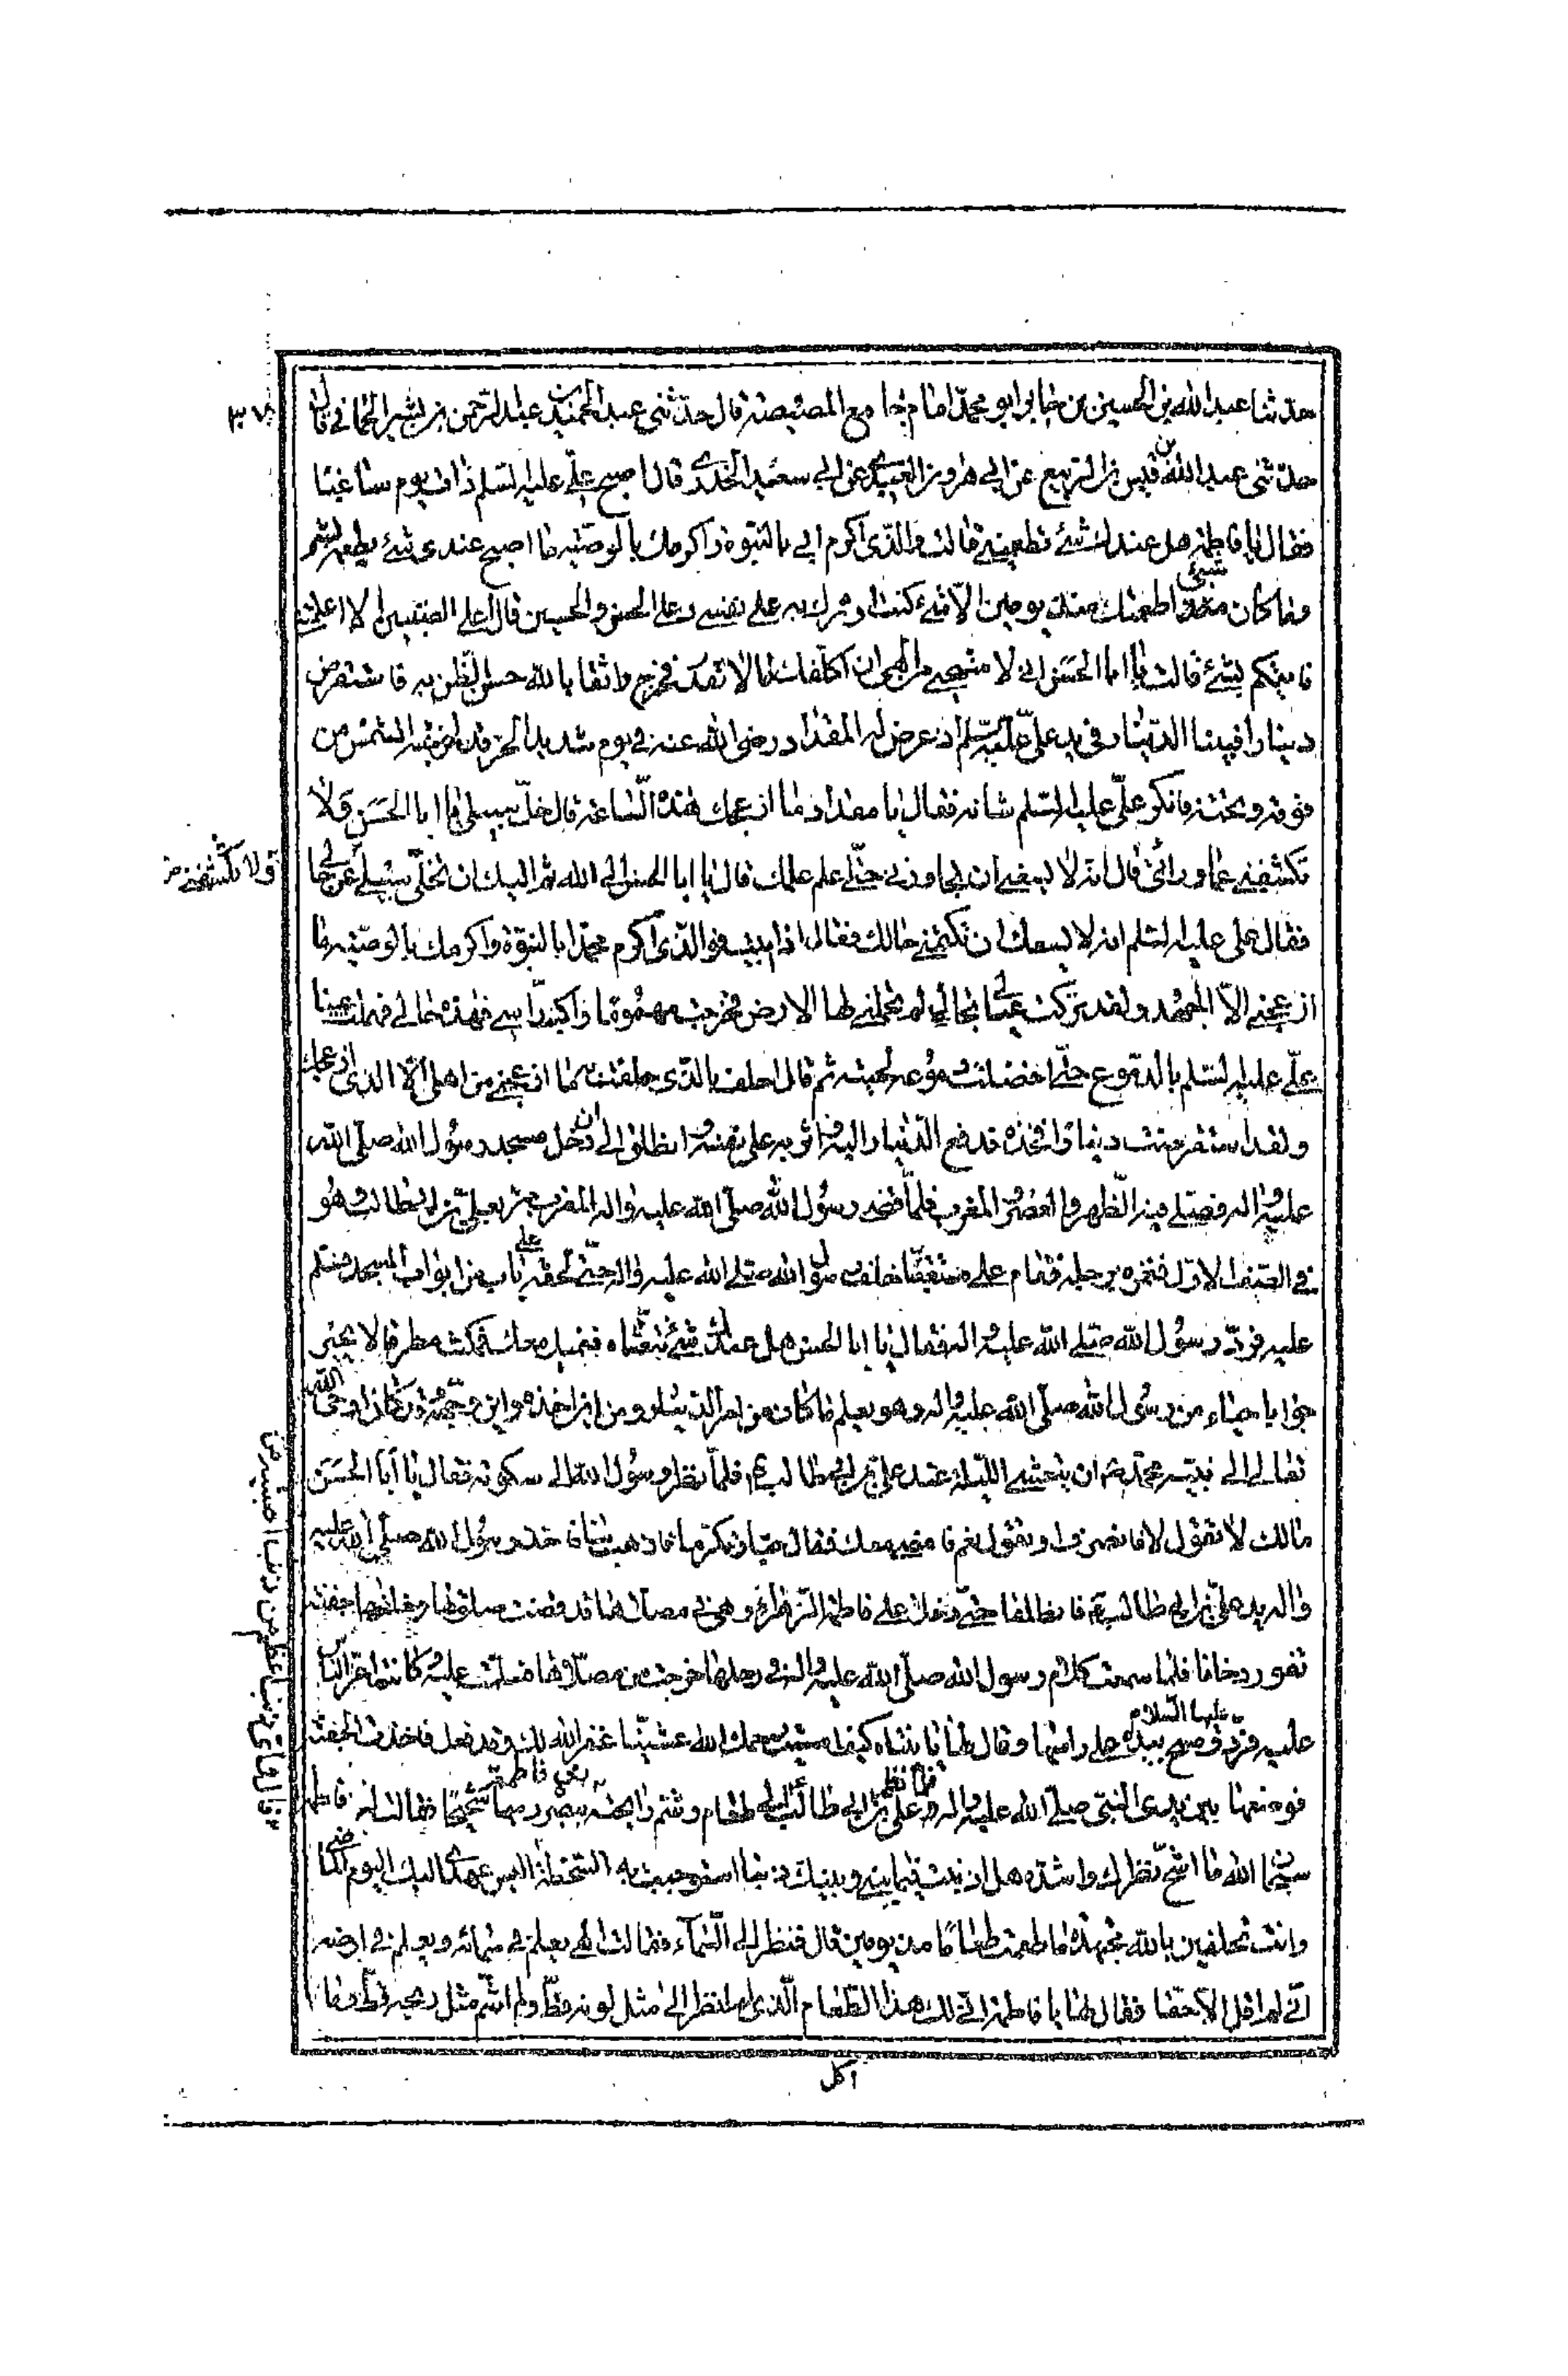 حدثنا عبد الله بن الحسين بن جابر ابو محمد امام جامع المصيصة قال حدثنى عبد الحميد بن عبد الرحمن بن بشير الحمانى قال
حدثنى عبد الله بن قيس بن الربيع عن ابى هرون العبدى عن ابى سعيد الخدرى قال اصبح على عليه السلم ذات يوم ساغبا
فقال يا فاطمة هل عندك شئ تطعمينه قالت والذى اكرم ابى بالنبوة واكرمك بالوصية ما اصبح عندى شئ يطعمه بشر
وما كان شئ اطعمتك منذ يومين الا شئ كنت اوثرك به على نفسى وعلى الحسن والحسين قال على الصبيين الا اعلمتنى
فاتيتكم بشئ قالت يا ابا الحسن انى لاستحيى من الهى ان اكلفك ما لا تقدر فخرج واثقا بالله حسن الظن به فاستقرض
دينارا فبينا الدينار فى يد على عليه السلم اذ عرض له المقداد رضى الله عنه فى يوم شديد الحر قد لوحته الشمس من
فوقه وتحته فانكر على عليه السلم شانه فقال يا مقداد ما ازعجك هذه الساعة قال خل سبيلى يا ابا الحسن ولا
تكشفنى عما ورائى قال انه لا يسعنى ان تجاوزنى حتى اعلم علمك قال يا ابا الحسن الى الله ثم اليك ان تخلى سبيلى عن حالى
ولا تكشفنى
فقال على عليه السلم انه لا يسعك ان تكتمنى حالك فقال اذا ابيت فو الذى اكرم محمدا بالنبوة واكرمك بالوصية ما
ازعجنى الا الجهد ولقد تركت عيالى بحال لم تحملنى لها الارض فخرجت مهموما راكبا راسى فهذه حالى فهملت عينا
على عليه السلم بالدموع حتى اخضلت دموعه لحيته ثم قال احلف بالذى حلفت به ما ازعجنى من اهلى الا الذى ازعجك
ولقد استقرضت دينارا فخذه فدفع الدينار اليه واثره به على نفسه وانطلق الى ان دخل مسجد رسول الله صلى الله
عليه واله فصلى فيه الظهر والعصر والمغرب فلما قضى رسول الله صلى الله عليه واله المغرب مر بعلى بن ابيطالب وهو
فى الصف الاول فغمزه برجله فقام على متعقبا خلف رسول الله صلى الله عليه واله حتى لحقه على باب من ابواب المسجد فسلم
عليه فرد رسول الله صلى الله عليه واله فقال يا ابا الحسن هل عندك شئ نتعشاه فنميل معك فمكث مطرقا لا يحير
جوابا حياء من رسول الله صلى الله عليه واله وهو يعلم ما كان من امر الدينار ومن اين اخذه واين وجهه وقد كان اوحى الله
تعالى الى نبيه محمد ان يتعشى الليلة عند على بن ابى طالب فلما نظر رسول الله الى سكوته فقال يا ابا الحسن
مالك لا تقول لا فانصرف او تقول نعم فامضى معك فقال حياء وتكرما فاذهب بنا فاخذ رسول الله صلى الله عليه
واله يد على بن ابى طالب فانطلقا حتى دخلا على فاطمة الزهراء وهى فى مصلاها قد قضت صلوتها وخلفها جفنة
تفور دخانا فلما سمعت كلام رسول الله صلى الله عليه واله فى رحلها خرجت من مصلاها فسلمت عليه وكانت اعز الناس
عليه فرد عليها السلام ومسح بيده على راسها وقال لها يا بنتاه كيف امسيت رحمك الله عشينا غفر الله لك وقد فعل فاخذت الجفنة
فوضعتها بين يدى النبى صلى الله عليه واله وعلى بن ابى طالب فلما نظر على الى طعام وشم رايحته رمى فاطمة ببصره رميا شحيحا فقالت له فاطمة
سبحان الله ما اشح نظرك واشده هل اذنبت فيما بينى وبينك ذنبا استوجبت به السخطة اليس عهدى اليك اليوم الماضى
قال واى ذنب اعظم من ذنب اصبتيه
وانت تحلفين بالله مجتهدة ما طعمت طعاما مذ يومين قال فنظرت الى السماء فقالت الهى يعلم فى سمائه ويعلم فى ارضه
انى لم اقل الا حقا فقال لها يا فاطمة انى لك هذا الطعام الذى لم انظر الى مثل لونه قط ولم اشم مثل ريحه قط وما
اكل